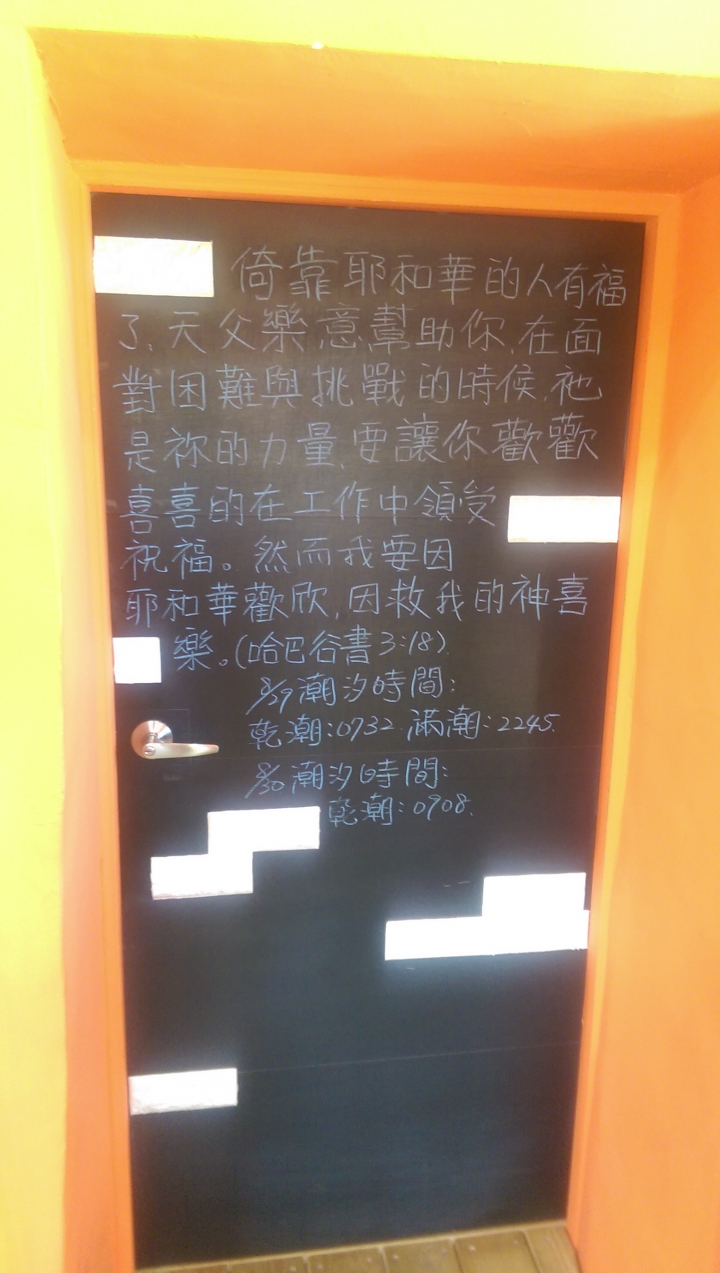 倚靠耶和華的人有福
了、天父樂意幫助你、在面
對困難與挑戰的時候、祂
是祢的力量、要讓你歡歡
喜喜的在工作中領受
祝福。然而我要因
耶和華歡欣，因救我的神喜
樂。(哈巴谷書3:18)
8/29潮汐時間:
乾潮:0732 滿潮:2245.
8/30潮汐時間:
乾潮:0908.